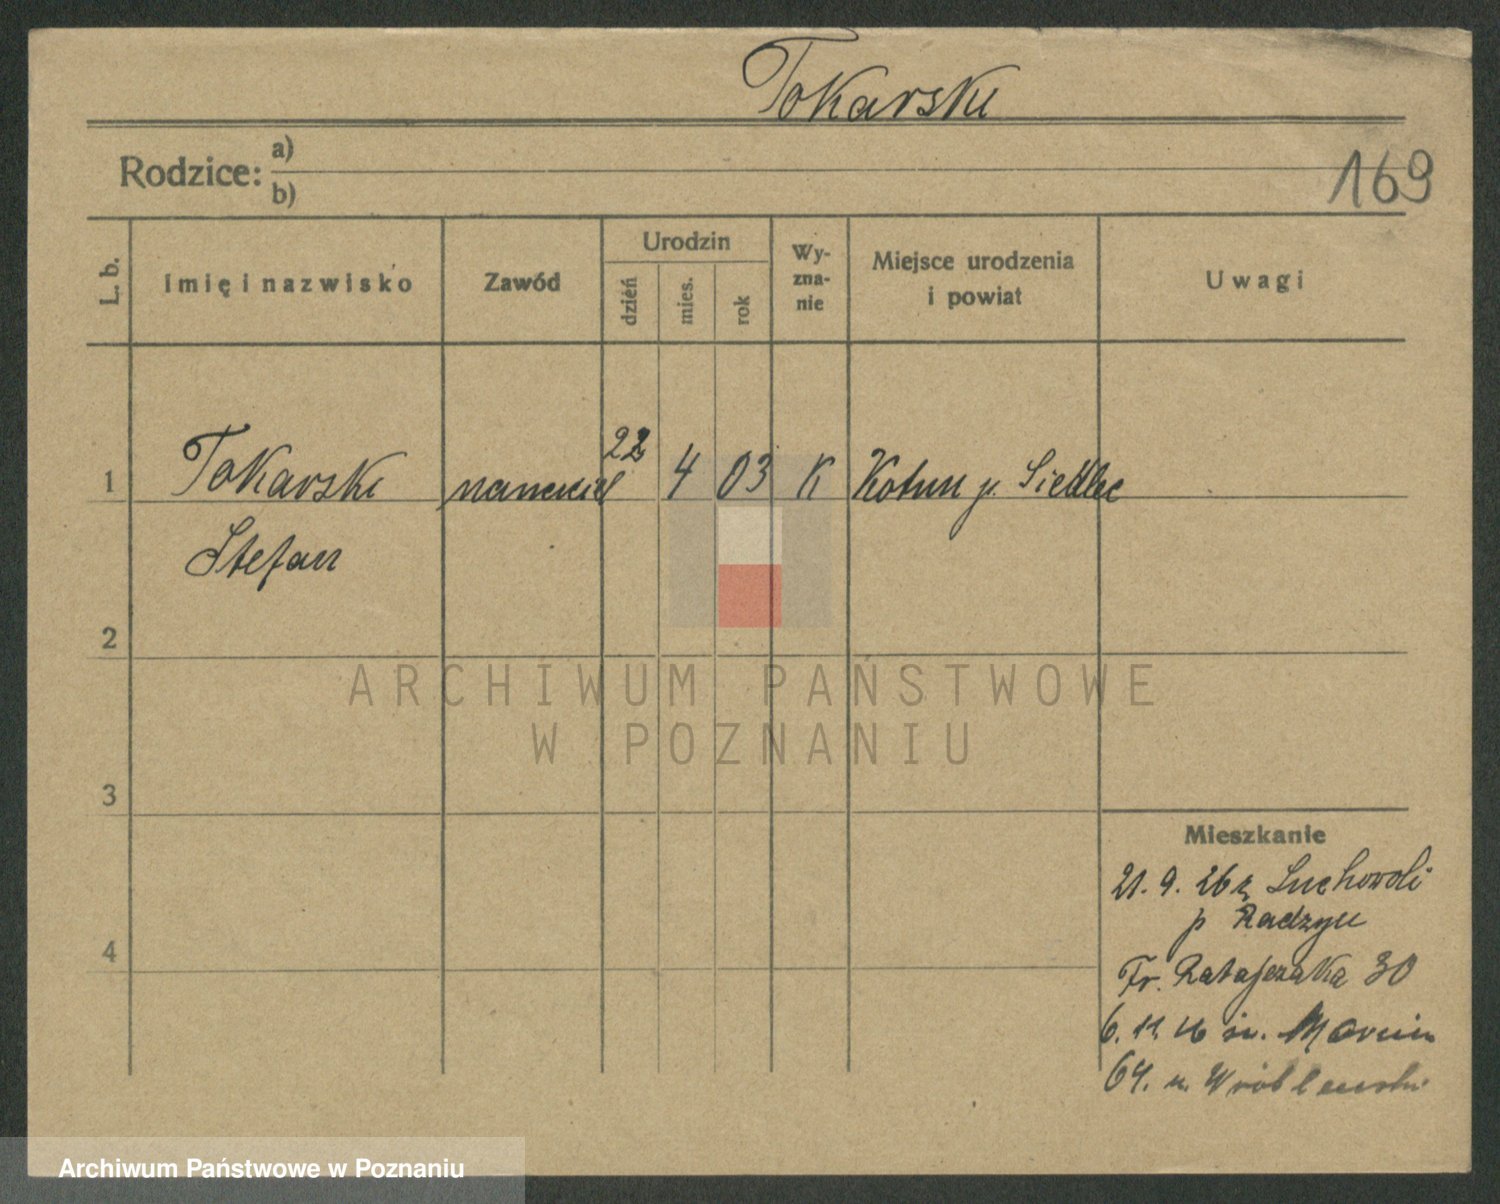 Tokarski
169
Rodzice: a)
b)
L. b.
Imię i nazwisko
Zawód
Urodzin
dzień
mies.
rok
Wy-
zna-
nie
Miejsce urodzenia
i powiat
Uwagi
1 Tokarski 22 4 03 K Kotun p. Siedlec
Stefan
2
3
4
Mieszkanie
21. 9. 26 z Suchowoli
p Radzyn
Fr. Ratajczaka 30
6. 11. 26 św. Marcin
64. u. Wróblewski
ARCHIWUM PAŃSTWOWE
W POZNANIU
Archiwum Państwowe w Poznaniu